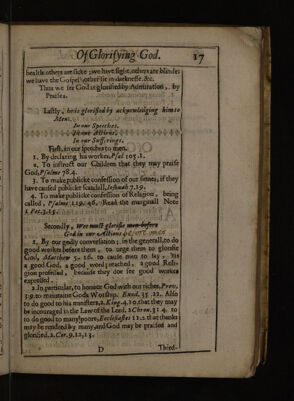 Of Glorifying God. 17
health: others are sicke; we have sight, others are blinde:
we have the Gospel, other sit in darknesse. &c.
Thus we see God is glorified by Admiration, by
Praises.
Lastly, he is glorified by acknowledging him to
Men.
In our Speeches.
In our Actions.
In our Sufferings.
First, in our speeches to men.
1. By declaring his workes, Psal. 105.1.
2. To instruct our Children that they may praise
God, Psalme 78.4.
3. To make publicke confession of our sinnes, if they
have caused publicke scandall, Joshuah 7.19.
4. To make publicke confession of Religion, being
called, Psalme 119.46. Read the marginall Note
1 Pet. 3.15.
Secondly, Wee must glorifie men before
God in our Actions
1. By our godly conversation; in the generall, to do
good workes before them, to urge them to glorifie
God, Matthew 5. 16. to cause men to say, his
a good God, a good word; reached, a good Reli-
gion professed, because they doe see good workes
expressed.
2. In particular, to honour God with our riches, Prov.
3.9. to maintaine Gods Worship. Exod. 35. 22. Also
to do good to his ministers, 2. King. 4. 10. that they may
be incouraged in the Law of the Lord. 2 Chron. 31. 4. to
to do good to many poore, Ecclesiastes 11.2. that thanks
may be rendred by many, and God may be praised and
glorified, 2. Cor. 9, 12, 13.
D Third-